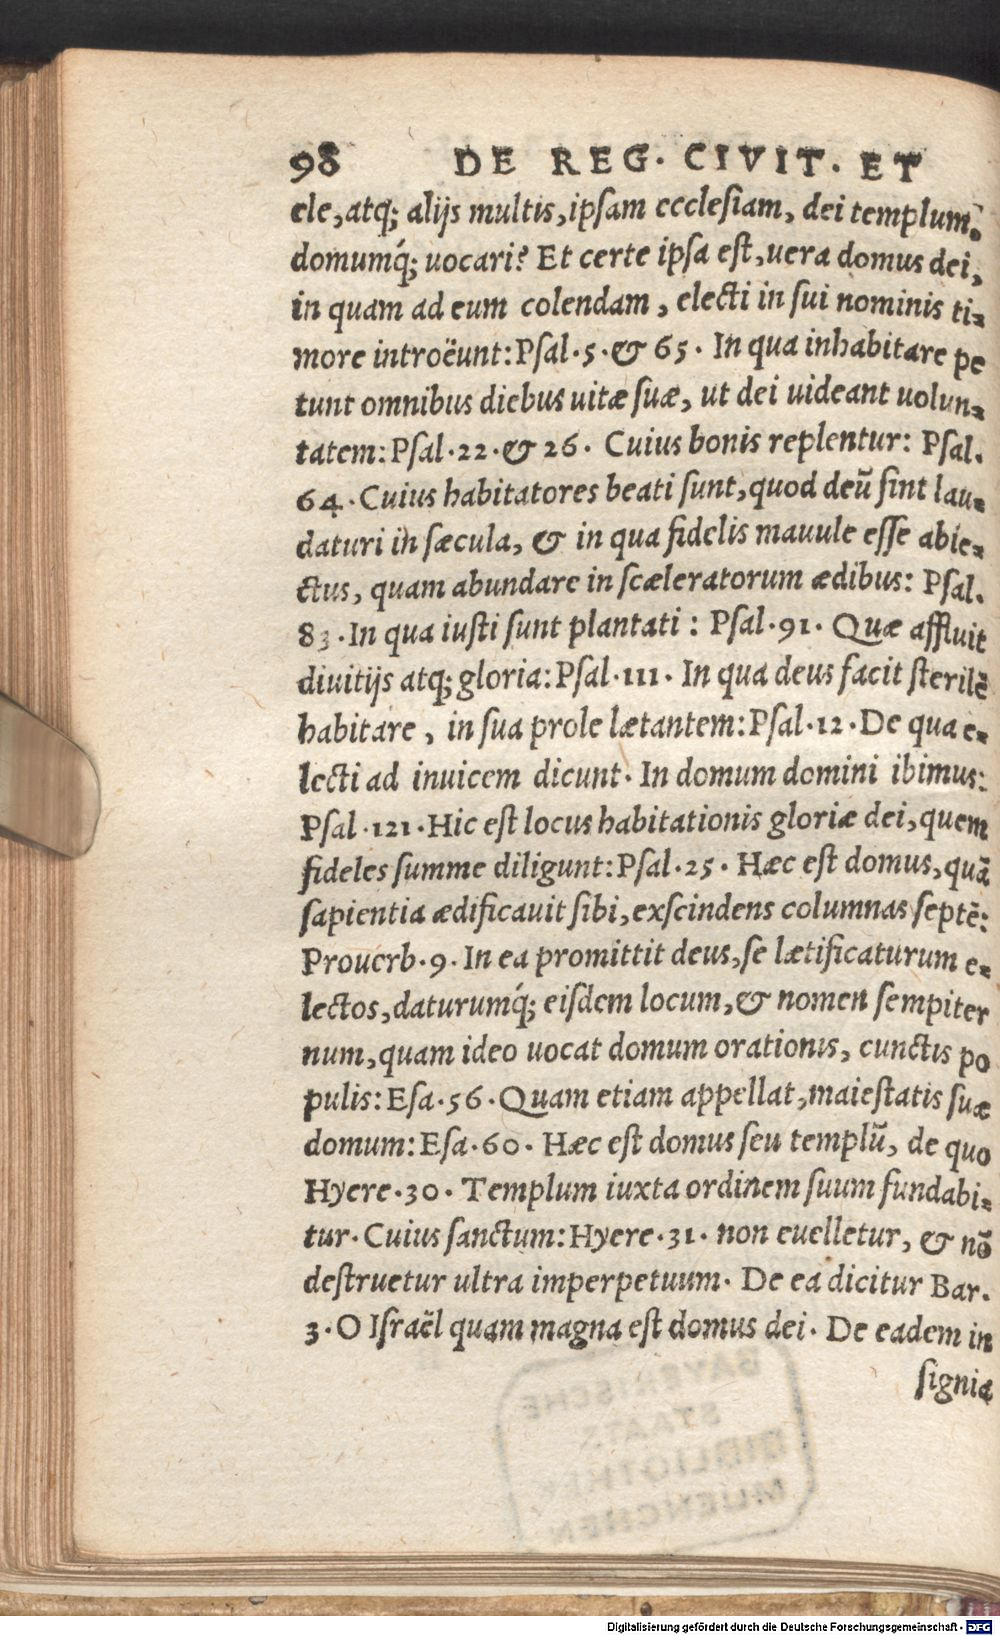 98 DE REG. CIVIT. ET
ele, atq; alijs multis, ipsam ecclesiam, dei templum,
domumq́; uocari? Et certe ipsa est, uera domus dei,
in quam ad eum colendam, electi in sui nominis ti=
more introëunt: Psal. 5. & 65. In qua inhabitare pe
tunt omnibus diebus uitæ suæ, ut dei uideant uolun=
tatem: Psal. 22. & 26. Cuius bonis replentur: Psal.
64. Cuius habitatores beati sunt, quod deũ sint lau=
daturi in sæcula, & in qua fidelis mauule esse abie=
ctus, quam abundare in scæleratorum ædibus: Psal.
83. In qua iusti sunt plantati: Psal. 91. Quæ affluit
diuitijs atq; gloria: Psal. 111. In qua deus facit sterilẽ
habitare, in sua prole lætantem: Psal. 12. De qua e=
lecti ad inuicem dicunt. In domum domini ibimus:
Psal. 121. Hic est locus habitationis gloriæ dei, quem
fideles summe diligunt: Psal. 25. Hæc est domus, quã
sapientia ædificauit sibi, exscindens columnas septẽ:
Prouerb. 9. In ea promittit deus, se lætificaturum e=
lectos, daturumq́; eisdem locum, & nomen sempiter
num, quam ideo uocat domum orationis, cunctis po
pulis: Esa. 56. Quam etiam appellat, maiestatis suæ
domum: Esa. 60. Hæc est domus seu templũ, de quo
Hyere. 30. Templum iuxta ordinem suum fundabi=
tur. Cuius sanctum: Hyere. 31. non euelletur, & nõ
destruetur ultra imperpetuum. De ea dicitur Bar.
3. O Israël quam magna est domus dei. De eadem in
signiæ
BAYERISCHE
STAATS
BIBLIOTHEK
MUENCHEN
Digitalisierung gefördert durch die Deutsche Forschungsgemeinschaft - DFG